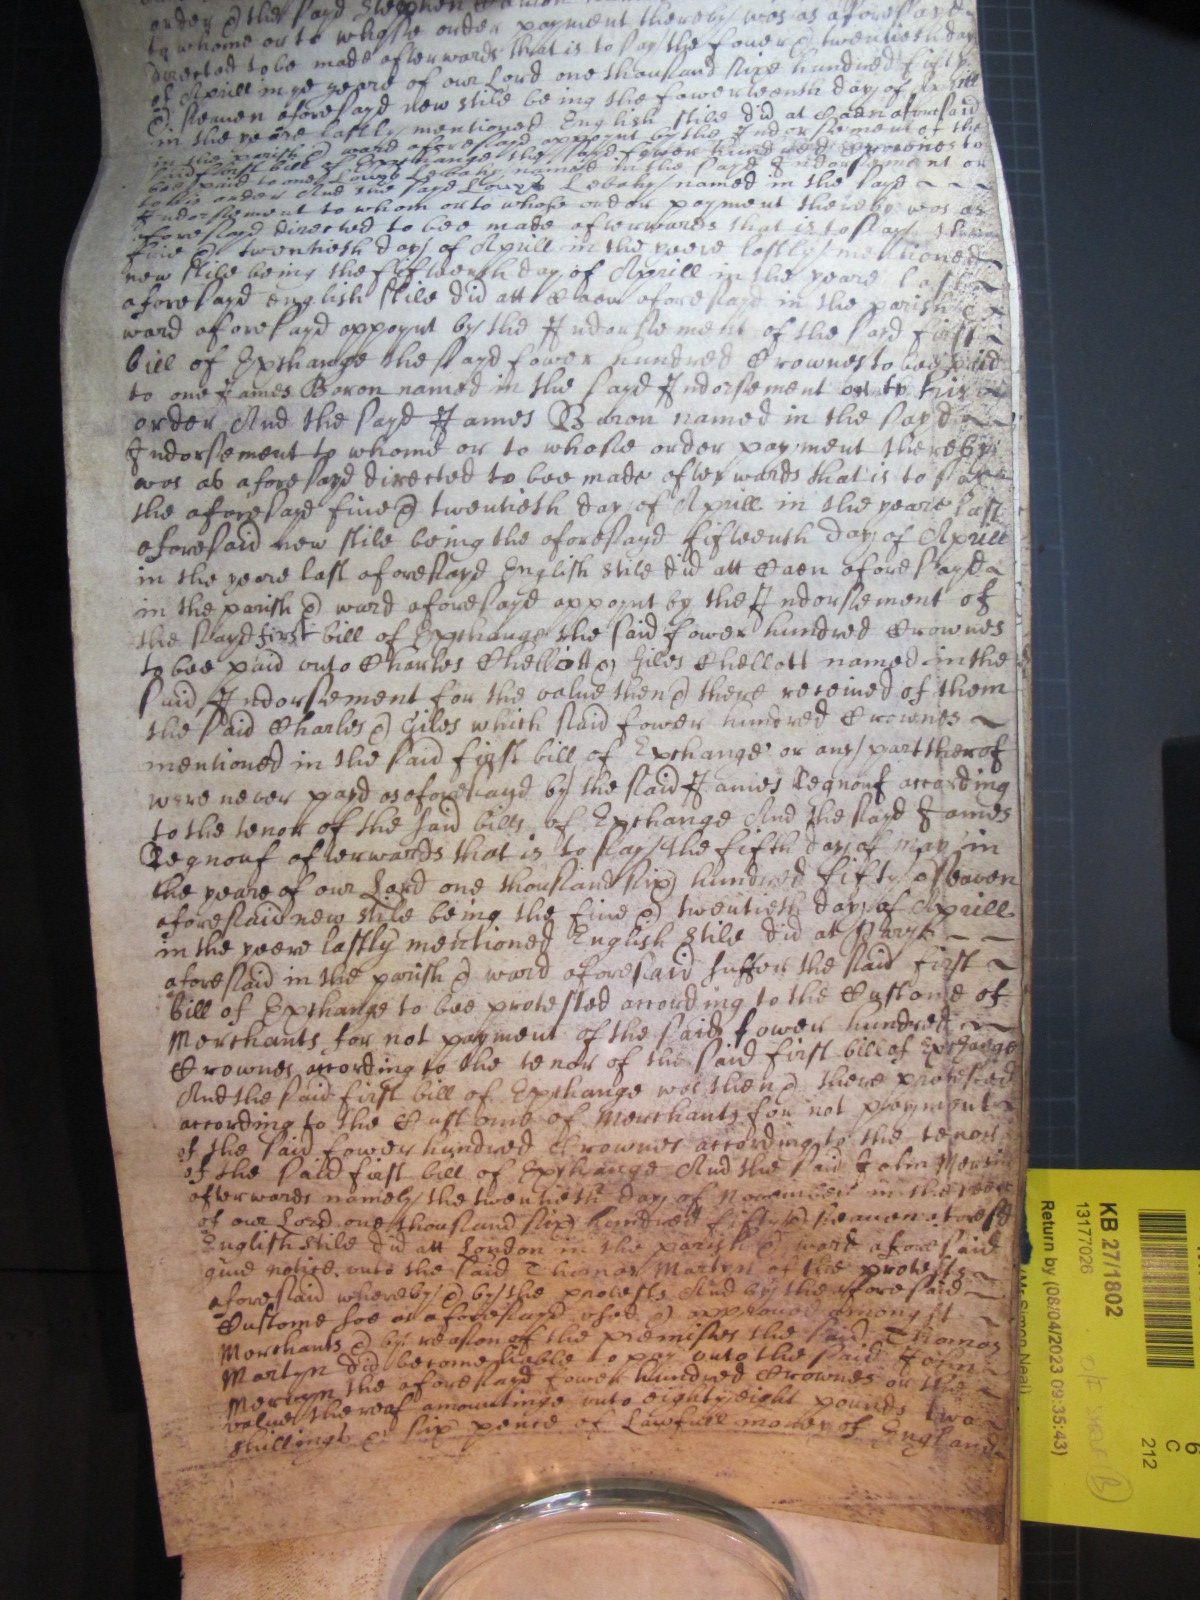 order & the sayd Stephen
to whome or to whose order payment thereby was as aforesayd
directed to be made afterwards that is to say the fower & twentieth day
of Aprill in ye yeare of our Lord one thousand sixe hundred fifty
& seaven aforesayd new stile being the fowerteenth day of Aprill
in the yeare lastly mentioned English stile did at Caen aforesaid
in the parish & ward aforesayd appoynt by the Indorsement of the
said first bill of Exchange the sayd fower hundred Crownes to
bee paid to one Lowys Lebahy named in the sayd Indorsement or
to his order And the sayd Lowys Lebahy named in the sayd
Indorsement to whom or to whose order payment thereby was as
aforesayd directed to bee made afterwards that is to say the
five & twentieth day of Aprill in the yeere lastly mentioned
new stile being the fifteenth day of Aprill in the yeare last
aforesayd English stile did att Caen aforesayd in the parish &
ward aforesayd appoynt by the Indorsement of the sayd first
bill of Exchange the sayd fower hundred Crownes to bee paid
to one James Baron named in the sayd Indorsement or to his
order And the sayd James Baron named in the sayd
Indorsement to whome or to whose order payment thereby
was as aforesayd directed to bee made afterwards that is to say
the aforesayd five & twentieth day of Aprill in the yeare last
aforesaid new stile being the aforesayd fifteenth day of Aprill
in the yeare last aforesayd English stile did att Caen aforesayd
in the parish & ward aforesayd appoynt by the Indorsement of
the sayd first bill of Exchange the said fower hundred Crownes
to bee paid unto Charles Chellott & Giles Chellott named in the
said Indorsement for the value then & there received of them
the said Charles & Giles which said fower hundred Crownes
mentioned in the said first bill of Exchange or any part therof
were never payd as aforesayd by the said James Regnouf according
to the tenor of the said bills of Exchange And the sayd James
Regnouf afterwards that is to say the fifth day of may in
the yeare of our Lord one thousand six hundred fifty & seaven
aforesaid new stile being the five & twentieth day of Aprill
in the yeere lastly mentioned English stile did at Parys
aforesaid in the parish & ward aforesaid suffer the said first
bill of Exchange to bee protested according to the Custome of
Merchants for not payment of the said fower hundred
Crownes according to the tenor of the said first bill of Exchange
And the said first bill of Exchange was then & there protested
according to the Custome of Merchants for not payment
of the said fower hundred Crownes according to the tenor
of the said first bill of Exchange And the said John Mersyn
afterwards namely the twentieth day of November in the yeere
of our Lord one thousand six hundred fifty & seaven aforesd
English stile did att London in the parish & ward aforesaid
give notice unto the said Thomas Martyn of the protests
aforesaid whereby & by the protests And by the aforesaid
Custome soe as aforesayd used & approved amongst
Merchants & by reason of the premisses the said Thomas
Martyn did become liable to pay unto the said John
Mersyn the aforesayd fower hundred Crownes or the
value thereof amountinge unto eighty eight pounds two
shillings & six pence of Lawfull money of England
KB 27/1802
13177026
Return by (08/04/2023 09:35:43)
(Mr Simon Neal)
6
C
212